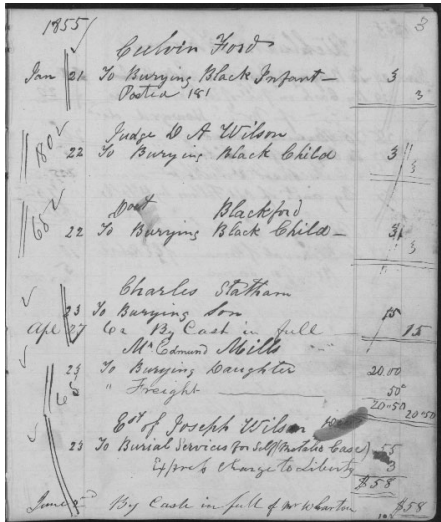 1855
3
Culvin Ford
Jan 21 To Burying Black Infant — 3
Posted 181 3
Judge D A Wilson
180 22 To Burying Black Child 3
3
Doct Blackford
68 22 To Burying Black Child — 3
3
Charles Statham
23 To Burying Son 15
Apl 27 Cr By Cash in full 15
Mr Edmund Mills
23 To Burying Daughter 20.00
65 " Freight 50
20.50 20.50
Est of Joseph Wilson
23 To Burial Services for Self (Metalic Case) 55
Express Charge to Liberty 3
$58
June 2nd By Cash in full of Mr Wharton $58